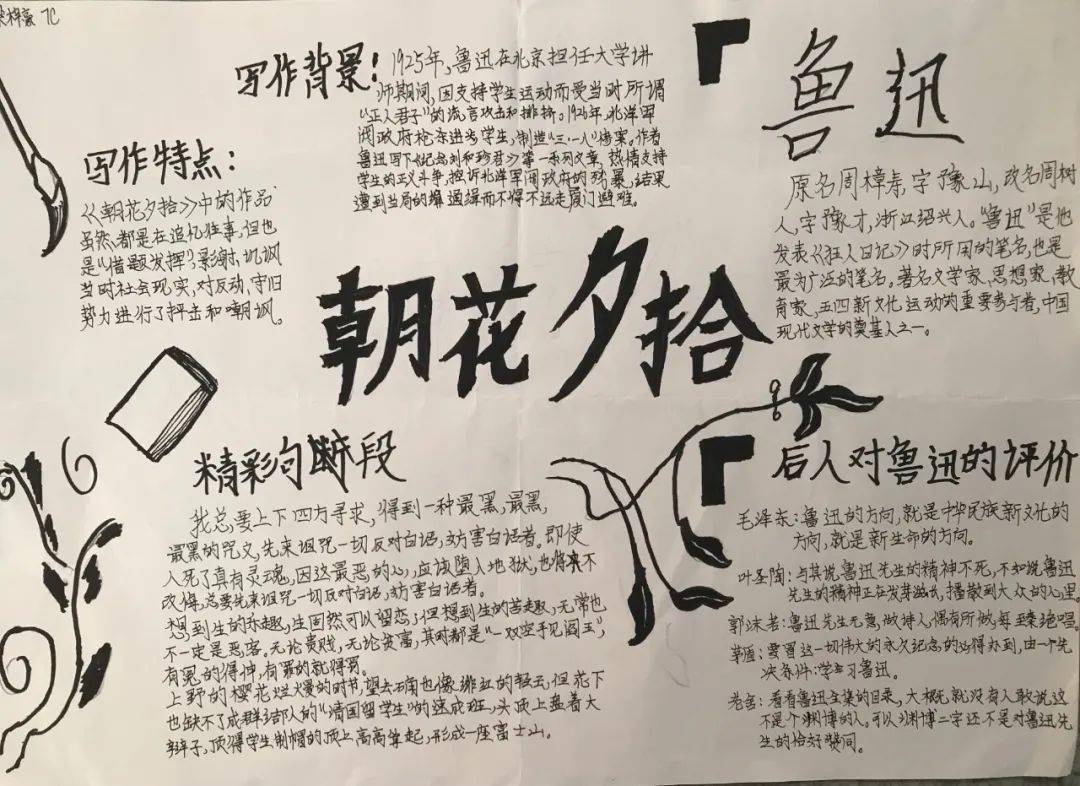 7C
写作背景！
1925年,鲁迅在北京担任大学讲
师期间,因支持学生运动而受当时所谓
“正人君子”的流言攻击和排挤。1926年,北洋军
阀政府枪杀进步学生,制造“三·一八”惨案。作者
鲁迅写下《纪念刘和珍君》等一系列文章,热情支持
学生的正义斗争,控诉北洋军阀政府的残暴,结果
遭到当局的 通缉而不得不远走厦门避难。
写作特点：
《朝花夕拾》中的作品
虽然都是在追忆往事,但也
是“借题发挥”,影射、讥讽
当时社会现实,对反动、守旧
势力进行了抨击和嘲讽。
鲁迅
原名周樟寿,字豫山,改名周树
人,字豫才,浙江绍兴人。“鲁迅”是他
发表《狂人日记》时所用的笔名,也是
最为广泛的笔名。著名文学家、思想家、教
育家,五四新文化运动的重要参与者,中国
现代文学的奠基人之一。
朝花夕拾
精彩句段
我总要上下四方寻求,得到一种最黑,最黑,
最黑的咒文,先来诅咒一切反对白话,妨害白话者。即使
人死了真有灵魂,因这最恶的心,应该堕入地狱,也将决不
改悔,总要先来诅咒一切反对白话,妨害白话者。
想到生的乐趣,生固然可以留恋;但想到生的苦趣,无常也
不一定是恶客。无论贵贱,无论贫富,其时都是“一双空手见阎王”,
有冤的得伸,有罪的就得罚。
上野的樱花烂熳的时节,望去确也像绯红的轻云,但花下
也缺不了成群结队的“清国留学生”的速成班,头顶上盘着大
辫子,顶得学生制帽的顶上高高耸起,形成一座富士山。
后人对鲁迅的评价
毛泽东:鲁迅的方向,就是中华民族新文化的
方向,就是新生命的方向。
叶圣陶:与其说鲁迅先生的精神不死,不如说鲁迅
先生的精神正在发芽滋长,播散到大众的心里
郭沫若:鲁迅先生无意做诗人,偶有所做,每臻绝唱。
茅盾:要冒这一切伟大的永久纪念的必得办到,由一个先
决条件:学习鲁迅。
老舍:看看鲁迅全集的目录,大概就没有人敢说这
不是个渊博的人。可以渊博二字还不是对鲁迅先
生的恰好赞同。